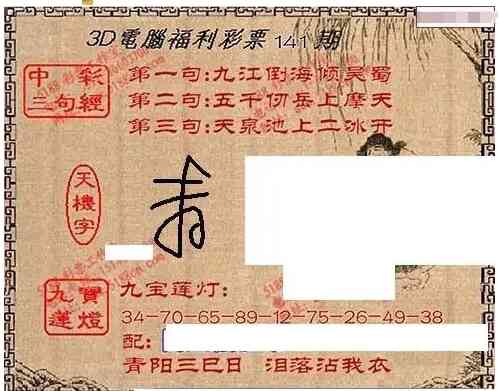 3D電腦福利彩票141期
中彩
三句經
第一句:九江倒海倾吴蜀
第二句:五千仞岳上摩天
第三句:天泉池上二冰开
天機字
九寶
蓮燈
九宝莲灯:
34-70-65-89-12-75-26-49-38
配:
青阳三巳日 泪落沾我衣